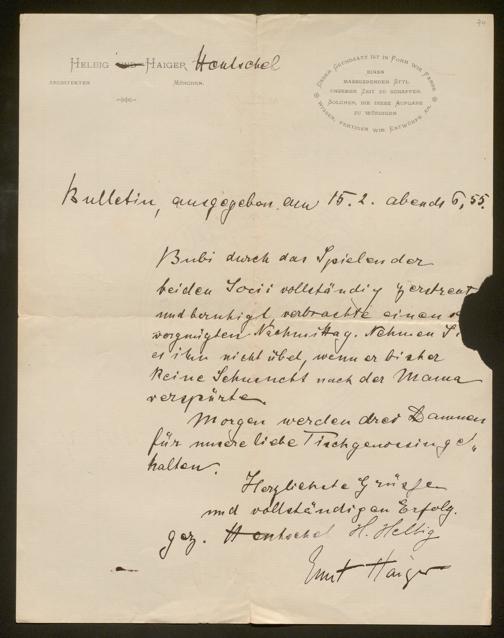 74
HELBIG UND HAIGER Hentschel
ARCHITEKTEN MÜNCHEN.
UNSER GRUNDSATZ IST IN FORM WIE FARBE
EINEN
MASSGEBENDEN STYL
UNSERER ZEIT ZU SCHAFFEN.
SOLCHEN, DIE DIESE AUFGABE
ZU WÜRDIGEN
WISSEN, FERTIGEN WIR ENTWÜRFE AN.
Bulletin, ausgegeben am 15.2. abends 6,55.
Bubi durch das Spielen der
beiden Socii vollständig zerstreut
und beruhigt verbrachte einen
vergnügten Nachmittag. Nehmen
es ihm nicht übel, wenn er bisher
keine Sehnsucht nach der Mama
verspürte.
Morgen werden drei Daumen
für unsere liebe Tischgenossin ge„
halten.
Herzlichste Grüsse
und vollständigen Erfolg.
gez. Hentschel H. Helbig
Ernst Haiger